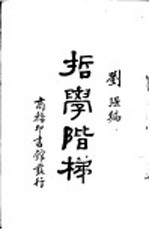 劉強編
哲學階梯
商務印書館發行